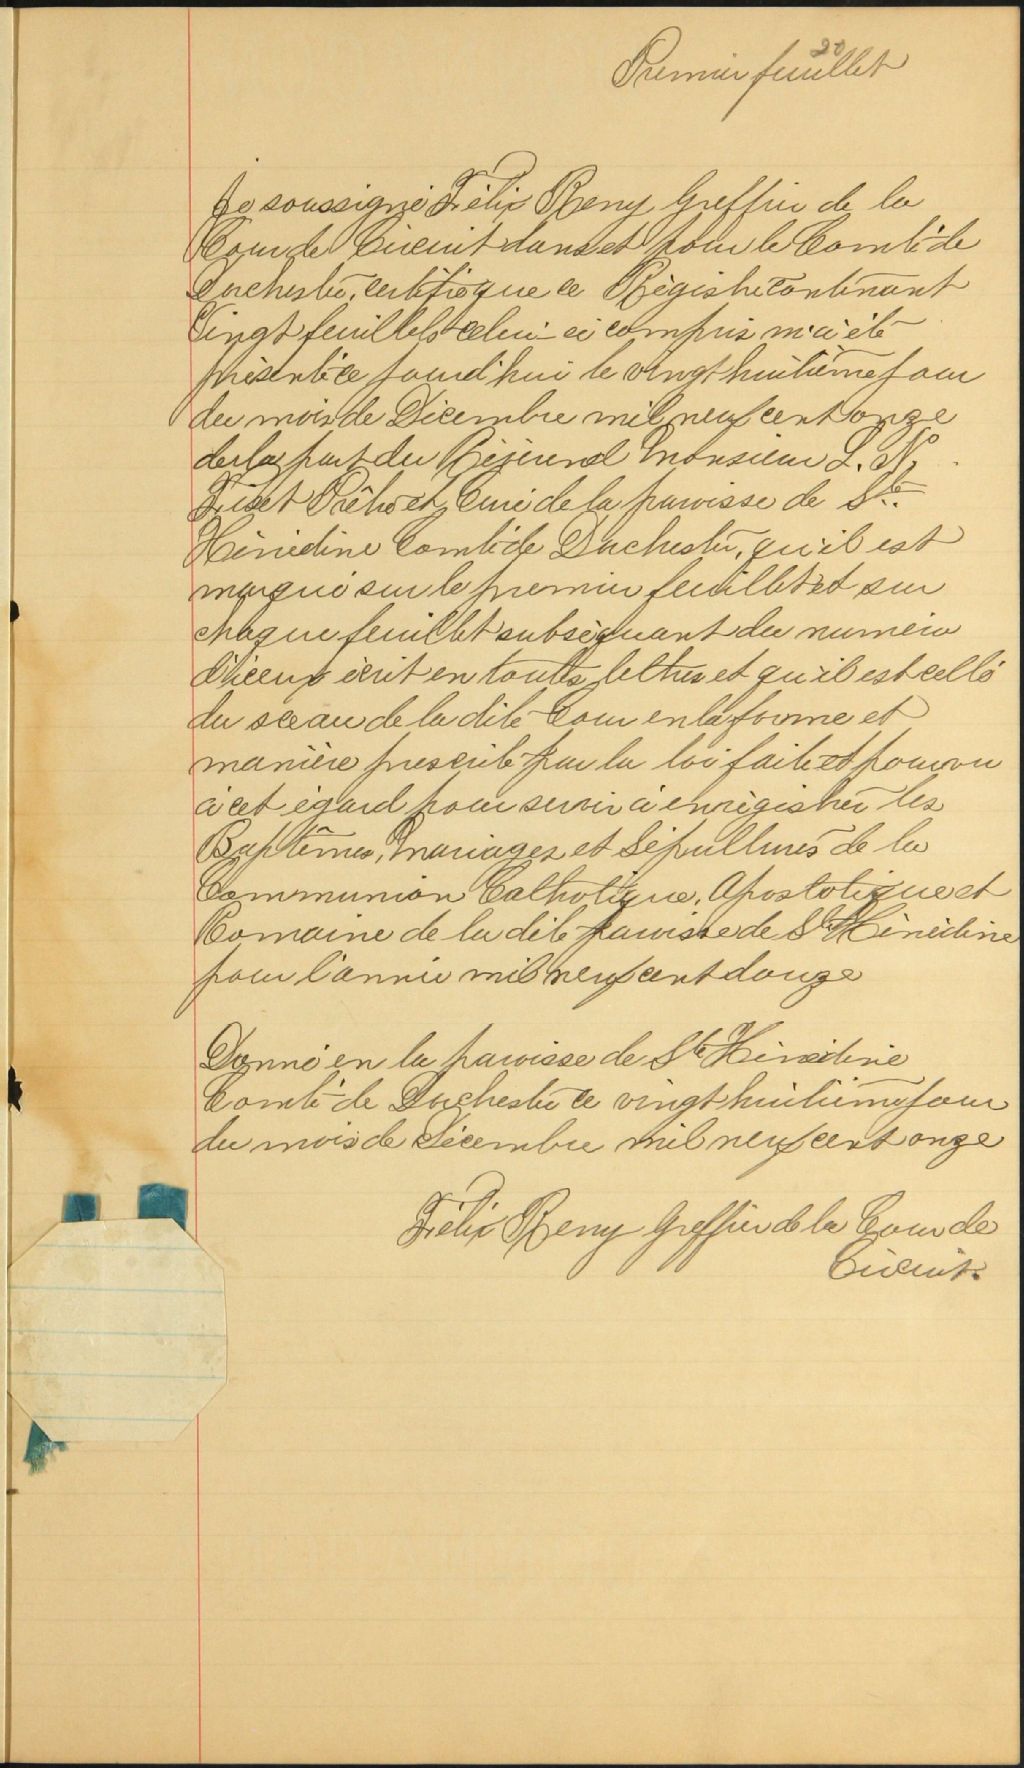 20
Premier feuillet
Je soussigné Félix Remy Greffier de la
Cour de Circuit dans et pour le Comté de
Dorchester, certifie que ce Régistre contenant
Vingt feuillets celui-ci compris m'a été
présenté ce jourd'hui le vingt huitième jour
du mois de Décembre mil neuf cent onze
de la part du Révérend Monsieur L. N.
Fiset Prêtre et Curé de la paroisse de Ste
Hénédine Comté de Dorchester, qu'il est
marqué sur le premier feuillet et sur
chaque feuillet subséquant du numéro
d'iceux écrit en toutes lettres et qu'il est cellé
du sceau de la dite Cour en la forme et
manière prescrite par la loi faite et pourvu
à cet égard pour servir à enrégistrer les
Baptêmes, Mariages et Sépultures de la
Communion Catholique, Apostolique et
Romaine de la dite paroisse de Ste Hénédine
pour l'année mil neuf cent douze
Donné en la paroisse de Ste Hénédine
Comté de Dorchester ce vingt huitième jour
du mois de Décembre mil neuf cent onze
Félix Remy Greffier de la Cour de
Circuit.